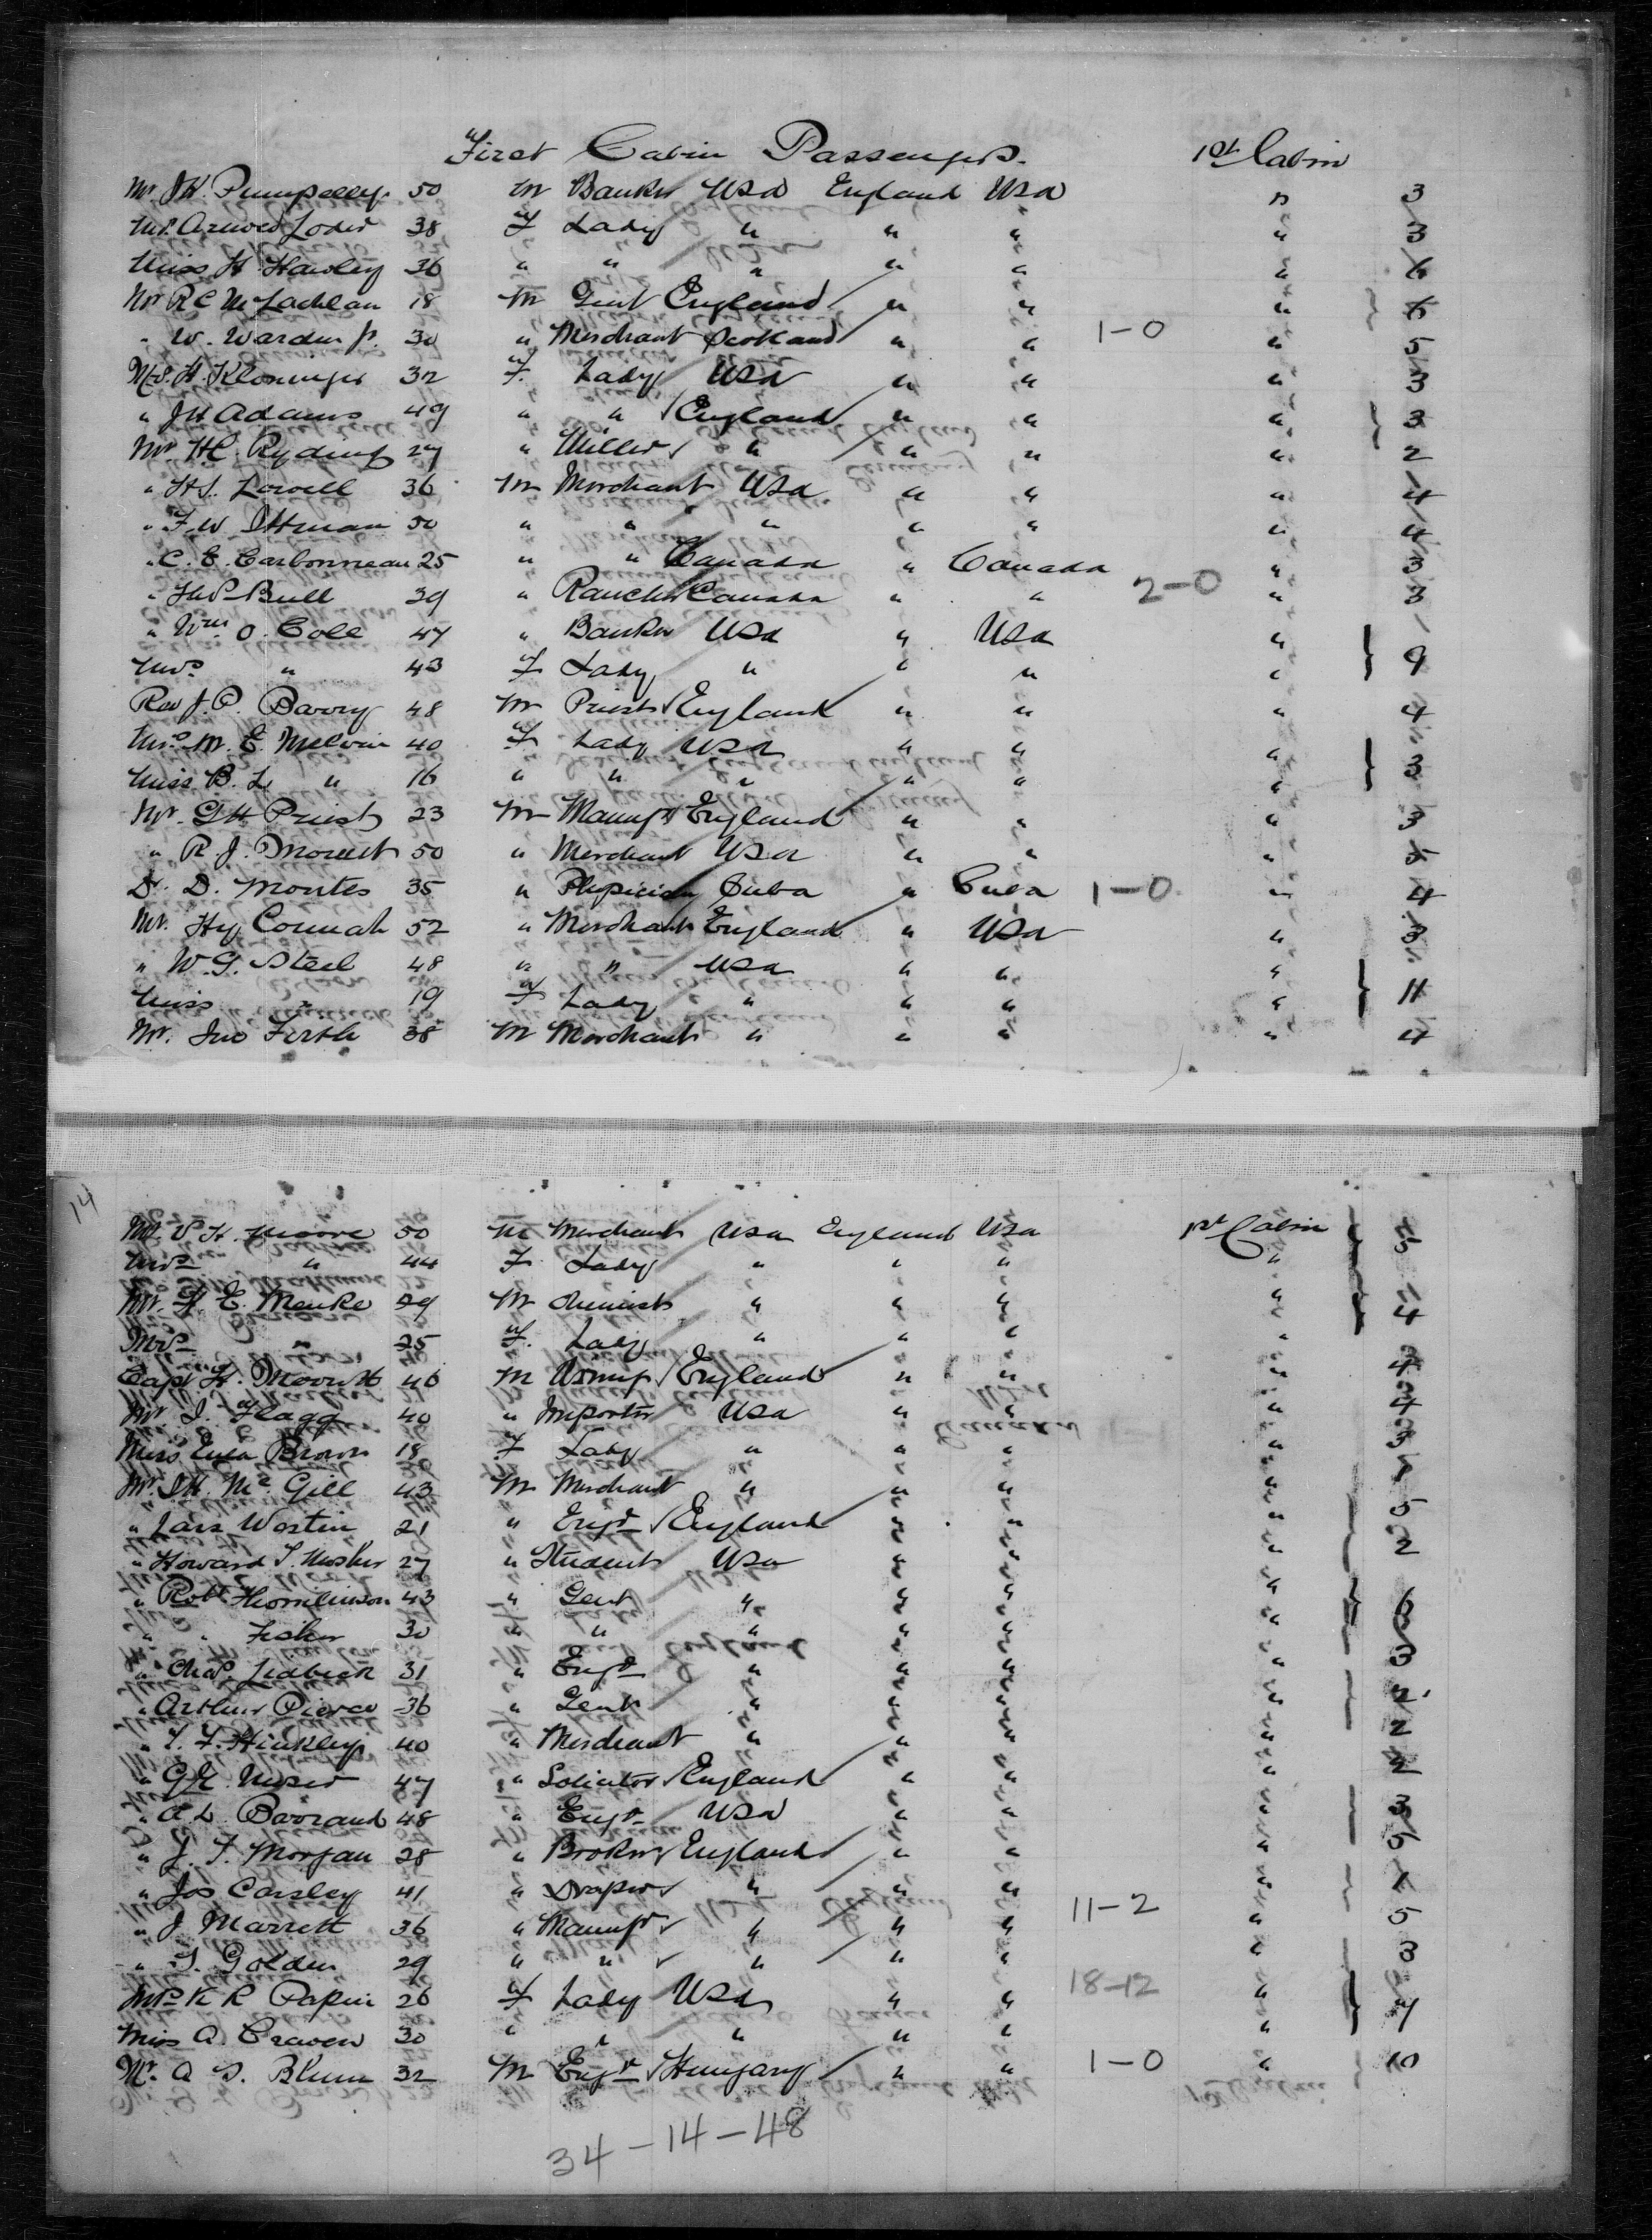 First Cabin Passengers. 1st Cabin
Mr. J.H. Pumpelly 50 M Banker USA England USA " 3
Mrs. Arnold Loder 38 F Lady " " " " 3
Miss H. Hawley 36 " " " " " " 6
Mr R C McLachlan 18 M Gent England " " " 6
" W. Warden Jr. 30 " Merchant Scotland " " 1-0 " 5
Mrs. H. 32 F. Lady USA " " " 3
" J H Adams 49 " " England " " " 3
Mr. H.C. Ryding 27 " Miller " " " " 2
" H S. Lowell 36 M Merchant USA " " " 4
" F. W. 50 " " " " " " 4
" C. E. Carbonneau 25 " " Canada " Canada " 3
" Bull 39 " Rancher Canada " " 2-0 " 3
" Wm. O. Cole 47 " Banker USA " USA " 9
Mrs. " 43 F Lady " " " "
Rev J. P. Barry 48 M Priest England " " " 4
Mrs. M. E. Melvin 40 F Lady USA " " " 3
Miss B. L " 16 " " " " " "
Mr. G H Priest 23 M Manufr England " " " 3
" R J. 50 " Merchant USA " " " 5
Dr. D. Montes 35 " Physician Cuba " Cuba 1-0 " 4
Mr. Hy Connah 52 " Merchant England " USA " 3
" W. G. Steel 48 " " USA " " " 11
Miss " 19 F Lady " " " "
Mr. Jno Firth 38 M Merchant " " " " 4
14
Mr. Moore 50 M Merchant USA England USA 1st Cabin 5
Mrs " 44 F. Lady " " " "
Mr. H. E. Menke 29 M Chemist " " " " 4
Mrs " 25 F. Lady " " " "
Capt H. 46 M Army England " " " 4
Mr. I. Flagg 40 " Importer USA " " " 4
Miss Eva Brown 18 F Lady " " " " 3
Mr. J.H. McGill 43 M Merchant " " " "
" Lars Westin 21 " Engr England " " " 5
" Howard T. Mosher 27 " Student USA " " " 2
" Robt Thomlinson 43 " Gent " " " " 6
" " Fisher 30 " " " " " "
" Chas. Lidback 31 " Engr " " " " 3
" Arthur Pierce 36 " Gent " " " " 2
" T. F. Hinkley 40 " Merchant " " " " 2
" G.H. 47 " Solicitor England " " " 2
" A L. Barrand 48 " Engr USA " " " 3
" J. T. Morgan 28 " Broker England " " " 5
" Jos Carsley 41 " Draper " " " " 1
" J Marrett 36 " Manufr " " " 11-2 " 5
" T. Golden 29 " " " " " " 3
Mrs K R Papin 26 F Lady USA " " 18-12 " 7
Miss A. Craven 30 " " " " " "
Mr. A. S. Blum 32 M Engr Hungary " " 1-0 " 10
34-14-48